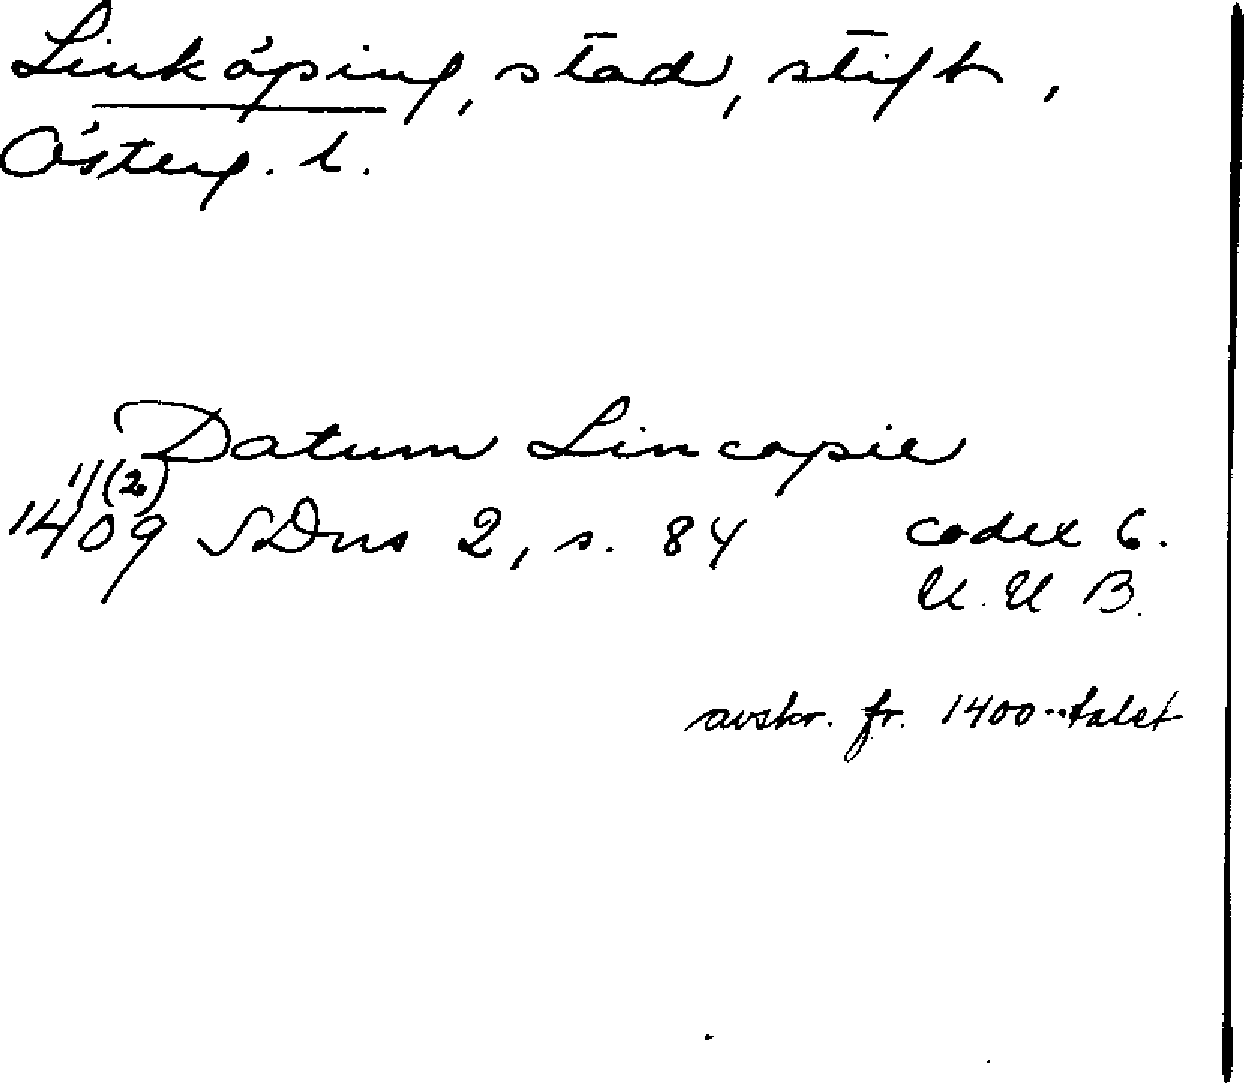 Linköping, stad, stift,
Österg. l.
Datum Lincopie
1/(2)
1409 SDns 2, s. 84 codex 6.
U. U B.
avskr. fr. 1400-talet